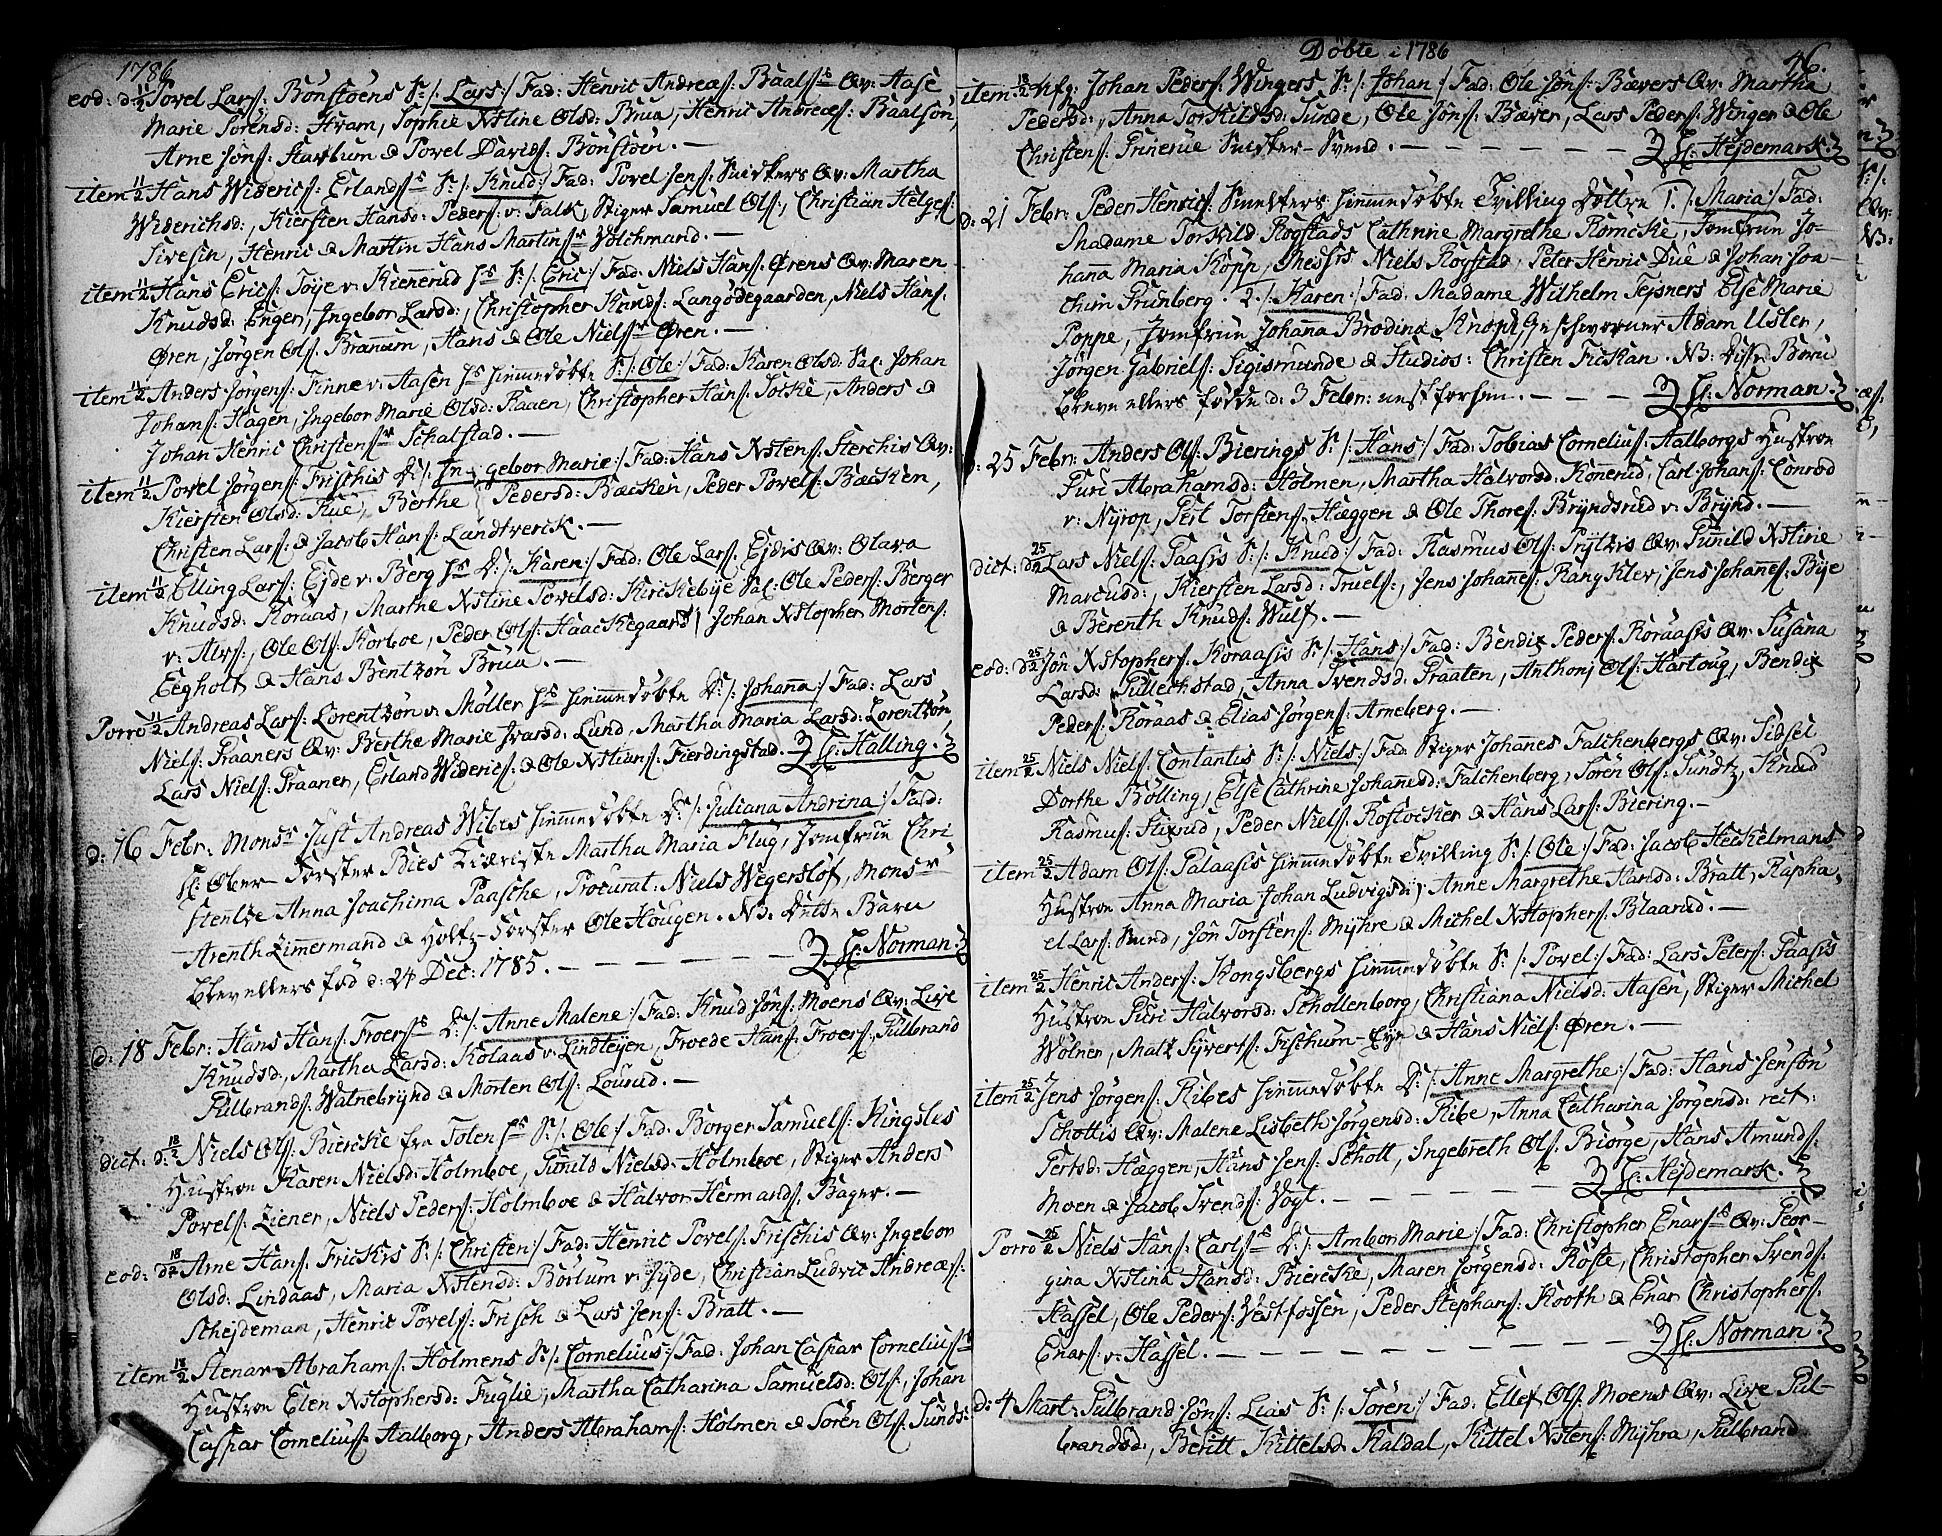 1786
eod: d 11/2 Povel Lars: Bönstöens S: /: Lars :/ Fad: Henric Andreæs: Baals Qv: Aase
Marie Sörensd: Hvam, Sophie Xstine Olsd: Brua, Henric Andreæs: Baalsön,
Arne Jöns: Starlum & Povel Davids: Bönstöen. —
item 11/2 Hans Wideric: Erlands S: /: Knud :/ Fad: Povel Jens: Qv: Martha
Widerichsd:, Kiersten Hansd: Peders: v: Falk, Stiger Samuel Ols:, Christian Helges:
Sivesin, Henric & Martin Hans Martins Volchmand. —
item 11/2 Hans Erics: Töye v: Kiennerud S: /: Eric :/ Fad: Niels Hans: Ørens Qv: Maren
Knudsd: Enger, Ingebor Larsd:, Christopher Knuds: Langödegaarden, Niels Hans:
Øren, Jörgen Ols: Branum, Hans & Ole Niels Øren. —
item 11/2 Anders Jörgens: Finne v: Aasen himmedöbte S: /: Ole :/ Fad: Karen Olsd: Sal: Johan
Johans: Hagen, Ingebor Marie Olsd: Raaen, Christopher Hans: Solske, Anders &
Johan Henric Christens Schalstad. —
item 11/2 Povel Jörgens: Frischis D: /: In- gebor Marie :/ Fad: Hans Xstens: Sterchis Qv:
Kiersten Olsd: Rue, Berthe Pedersd: Bæcken, Peder Povels: Bæcken,
Christen Lars: & Jacob Hans: Landtverck. —
item 11/2 Elling Lars: Ejde v: Berg D: /: Karen :/ Fad: Ole Lars: Ejdis Qv: Olava
Knudsd: Koraas, Marthe Xstine Povelsd: Kirckebÿe Sal: Ole Peders: Berger
v: Alvs:, Ole Ols: Korboe, Peder Ols: Haackegaard, Johan Xstopher Mortens:
Eegholt & Hans Bentzön Brua. —
Porro 11/2 Andreas Lars: Lorentzön v: Möller himmedöbte D: /: Johana :/ Fad: Lars
Niels: Praaners Qv: Berthe Marie Ivarsd: Lund, Martha Maria Larsd: Lorentzön
Lars Niels: Praaner, Erland Wideric: & Ole Xstians: Fierdingstad. H: Halling.
d: 16 Febr: Mons Just Andreas Wibes himmedöbte D: /: Juliana Andrina :/ Fad:
H: Ober-Forster Bies Kiæreste Martha Maria Flug, Jomfrue Chri
stentze Anna Joachima Paasche, Procurat: Niels Wegerslöf, Mons
Arenth Zimermand & Holtz-Forster Ole Hougen. NB: Dette Barn
blev ellers föd d: 24 Dec: 1785. — H: Norman
d: 18 Febr: Hans Hans: Froers D: /: Anne Malene :/ Fad: Knud Jöns: Moens Qv: Live
Knudsd:, Martha Larsd: Kolaas v: Lindteÿen, Froede Hans: Froer, Pulbrand
Pulbrands: Watnebrÿnd & Morten Ols: Lourud. —
dict: d: 18/2 Niels Ols: Biercke fra Toten S: /: Ole :/ Fad: Borger Samuels: Ringsles
Hustroe Karen Nielsd: Holmboe, Punild Nielsd: Holmboe, Stiger Anders
Povels: Ziener, Niels Peders: Holmboe & Halvor Hermands: Bager. —
eod: d 18/2 Arne Hans: Frickis S: /: Christen :/ Fad: Henric Povels: Frischis Qv: Ingebor
Olsd: Lindaas, Maria Xstensd: Börlum v: Sÿde, Christian Ludvic Andreæs:
Schejdeman, Henric Povels: Frisch & Lars Jens: Bratt. —
item 18/2 Stenar Abrahams: Holmens S: /: Cornelius :/ Fad: Johan Caspar Cornelius
Hustroe Elen Xstophersd: Fuglie, Martha Catharina Samuelsd: Ols:, Johan
Caspar Cornelius: Aalborg, Anders Abrahams: Holmen & Sören Ols: Sunds:
Döbte i 1786
76.
item 18/2 Johan Peders: Wingers S: /: Johan :/ Fad: Ole Jöns: Bævers Qv: Martha
Pedersd:, Anna Torkildsd: Sunde, Ole Jöns: Bæver, Lars Peders: Winger & Ole
Christens: Prinerue -Svend. — H: Hejdemark
d: 21 Febr: Peder Henrics: himmedöbte Tvilling Döttre 1. /: Maria :/ Fad:
Madame Torkild Rogstads Cathrine Margrethe Romcke, Jomfrue Jo-
hana Maria Köpp, Mess Niels Rogstad, Peter Henric Due & Johan Joa-
chim Prunberg. 2. /: Karen :/ Fad: Madame Wilhelm Tepsners Else Marie
Poppe, Jomfrue Johana Brodina Knoph, Geschworner Adam Usler,
Jörgen Gabriels: Sigismunde & Studios: Christen Fickan. NB: Disse Börn
bleve ellers födde d: 3 Febr: nestforhen. — H: Norman
d: 25 Febr: Anders Ols: Bierings S: /: Hans :/ Fad: Tobias Cornelius: Aalborgs Hustroe
Puri Abrahamsd: Holmen, Martha Halvorsd: Konnerud, Carl Johans: Conrod
v: Nÿrop, Perl Torstens: Hæggen & Ole Thores: Brÿndsrud v: Brÿnd. —
dict: d 25/2 Lars Niels: Paasis S: /: Knud :/ Fad: Rasmus Ols: Prÿtzis Qv: Punild Xstine
Marcusd:, Kiersten Larsd: Truels:, Jens Johanes: Rang Klev, Jens Johanes: Bÿe
& Berenth Knuds: Wulf. —
eod: d 25/2 Jön Xstophers: Koraasis S: /: Hans :/ Fad: Bendix Peders: Koraasis Qv: Susana
Larsd: Pullechstad, Anna Svendsd: Praaten, Anthonj Ols: Hartoug, Bendix
Peders: Röraas & Elias Jörgens: Arneberg. —
item 25/2 Niels Niels: Contantis S: /: Niels :/ Fad: Stiger Johannes Falchenbergs Qv: Sidsel
Dorthe Bölling, Else Cathrine Johanesd: Falchenberg, Sören Ols: Sundtz, Knud
Rasmus: Stixrud, Peder Niels: Rostocker & Hans Lars: Biering. —
item 25/2 Adam Ols: Palaasis himmedöbte Tvilling S: /: Ole :/ Fad: Jacob Heckelmans
Hustroe Anna Maria Johan Ludvigsd:, Anne Margrethe Hansd: Bratt, Rapha-
el Lars: Sund, Jön Torstens: Mÿhre & Michel Xstophers: Blaarud. —
item 25/2 Henric Anders: Kongsbergs himmedöbte S: /: Povel :/ Fad: Lars Peters: Paasis
Hustroe Puri Halvorsd: Schollenborg, Christiana Nielsd: Aasen, Stiger Michel
Wölner, Matz Sÿverts: Fischum-Eÿe & Hans Niels: Øren. —
item 25/2 Jens Jörgens: Ribes himmedöbte D: /: Anne Margrethe :/ Fad: Hans Jensön
Schottis Qv: Malene Lisbeth Jörgensd: Ribe, Anna Catharina Jörgensd: rect:
Pertsd: Hæggen, Hans Jens: Schott, Ingebreth Ols: Biörge, Hans Amunds:
Moen & Jacob Svends: Vogt. — H: Hejdemark.
Porro 25/2 Niels Hans: Carls D: /: Ambor Marie :/ Fad: Christopher Enars Qv: Peor-
gina Xstina Hansd: Biercke, Maren Jörgensd: Röste, Christopher Svends:
Hassel, Ole Peders: Vestfossen, Peder Stephans: Kooth & Enar Christophers:
Enars: v: Hassel. — H: Norman
d: 4 Mart: Pulbrand Jöns: Lias S: /: Sören :/ Fad: Ellef Ols: Moens Qv: Live Pul-
brandsd:, Beritt Kittelsd: Kaldal, Kittel Xstens: Mÿhra, Pulbrand